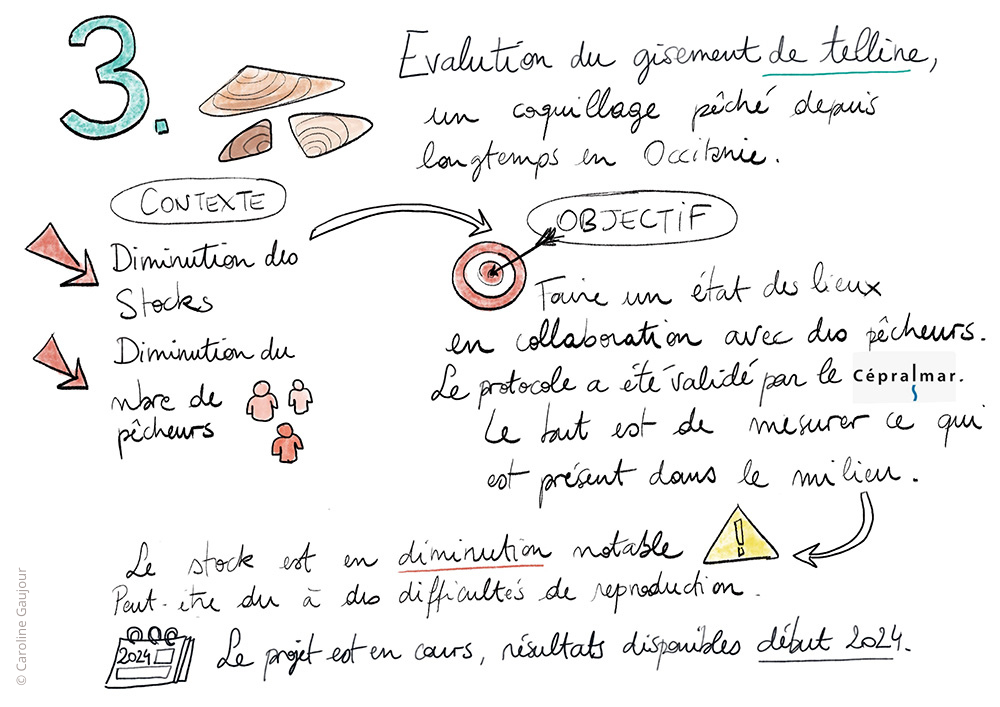 3.
Evalution du gisement de telline,
un coquillage pêché depuis
longtemps en Occitanie.
CONTEXTE
Diminution des
Stocks
Diminution du
nbre de
pêcheurs
OBJECTIF
Faire un état des lieux
en collaboration avec des pêcheurs.
Le protocole a été validé par le Cépralmar.
Le but est de mesurer ce qui
est présent dans le milieu.
!
Le stock est en diminution notable
Peut-être du à des difficultés de reproduction.
2024
Le projet est en cours, résultats disponibles début 2024.
© Caroline Gaujour